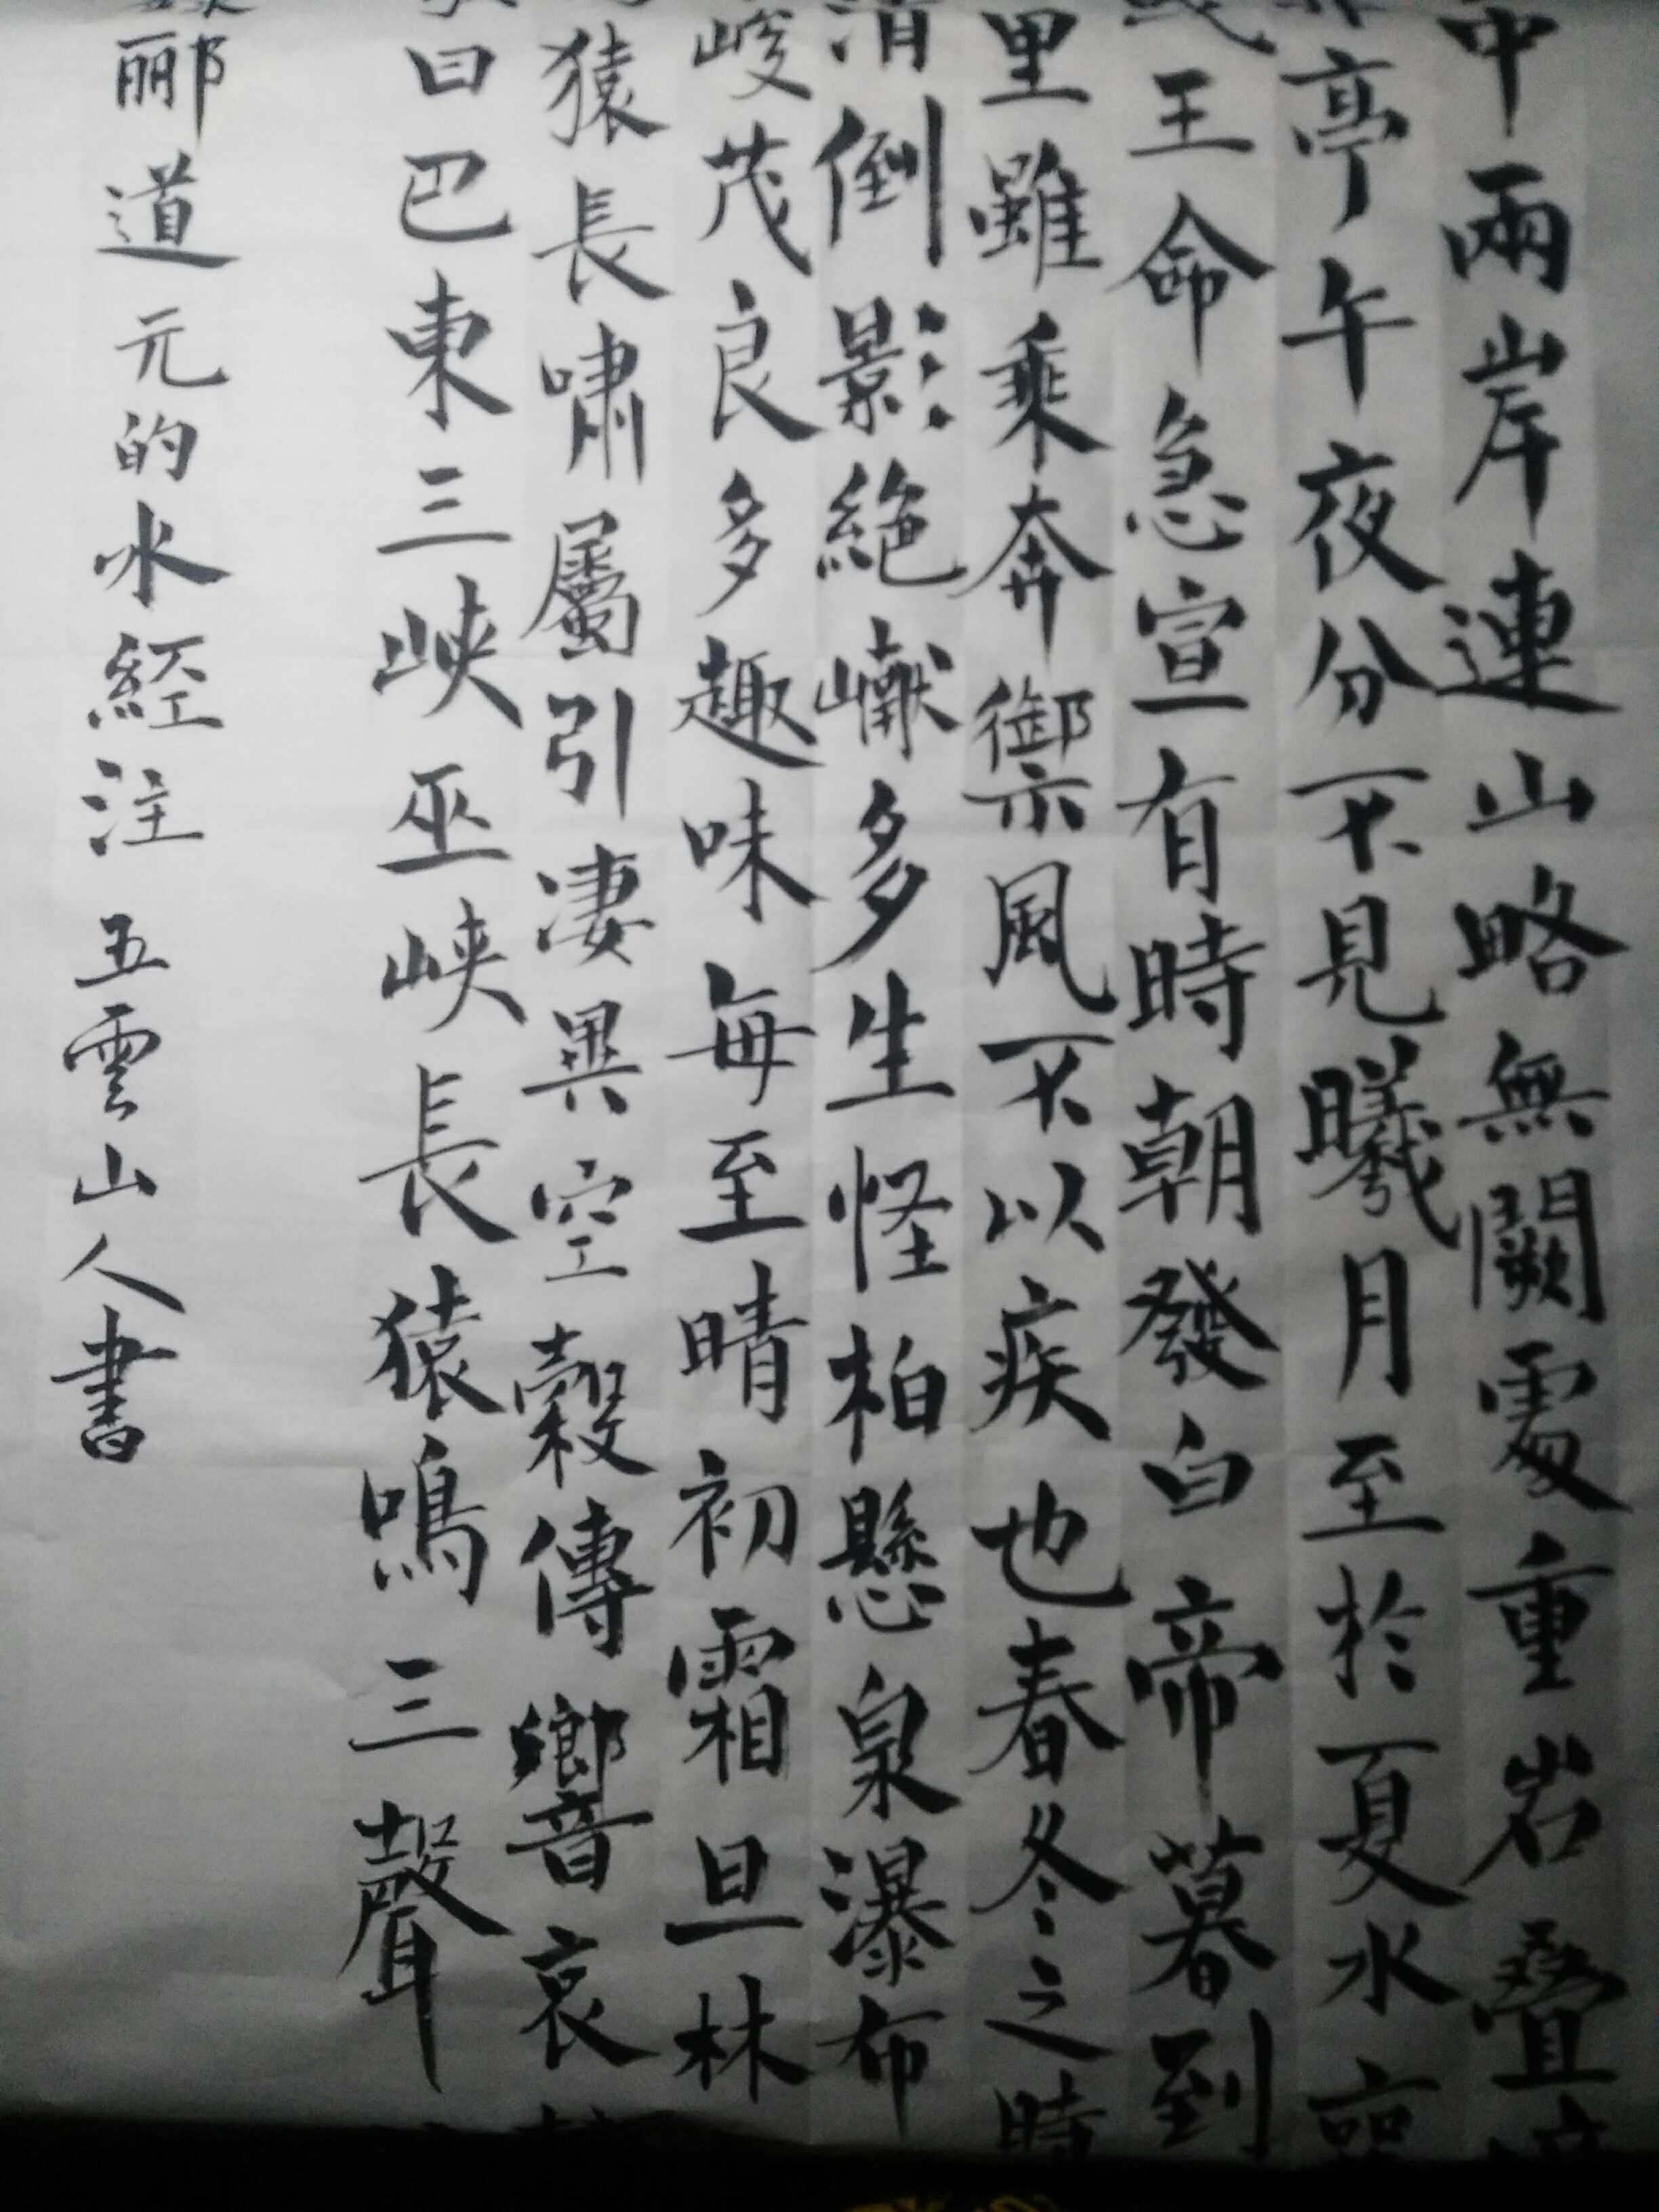 中兩岸連山略無闕處重岩疊
亭午夜分不見曦月至於夏水
王命急宣有時朝發白帝暮到
里雖乘奔禦風不以疾也春冬之時
清倒影絕巘多生怪柏懸泉瀑布
峻茂良多趣味每至晴初霜旦林
猿長嘯屬引凄異空穀傳響哀
曰巴東三峽巫峽長猿鳴三聲
酈道元的水經注 五雲山人書